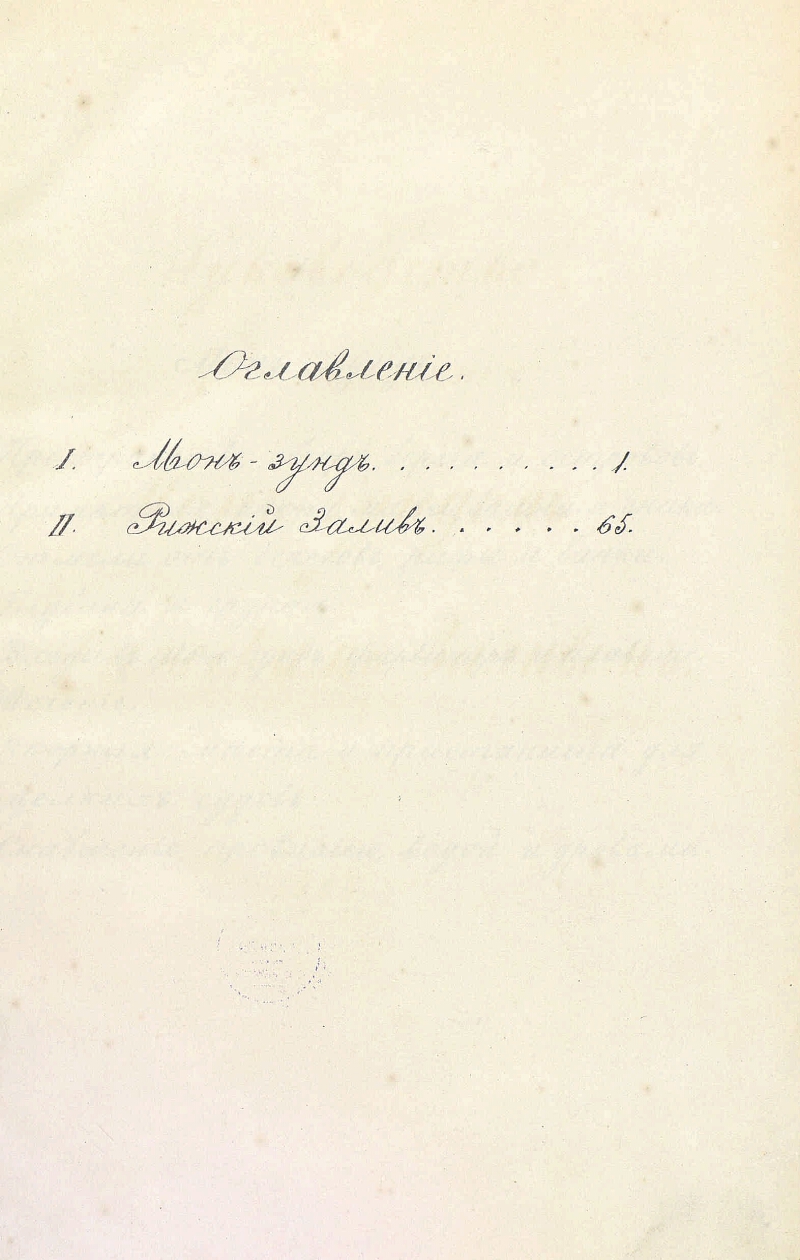 Оглавленіе.
I. Монъ-зундъ. . . . . . . . . . 1.
II. Рижскій Заливъ. . . . . . 65.